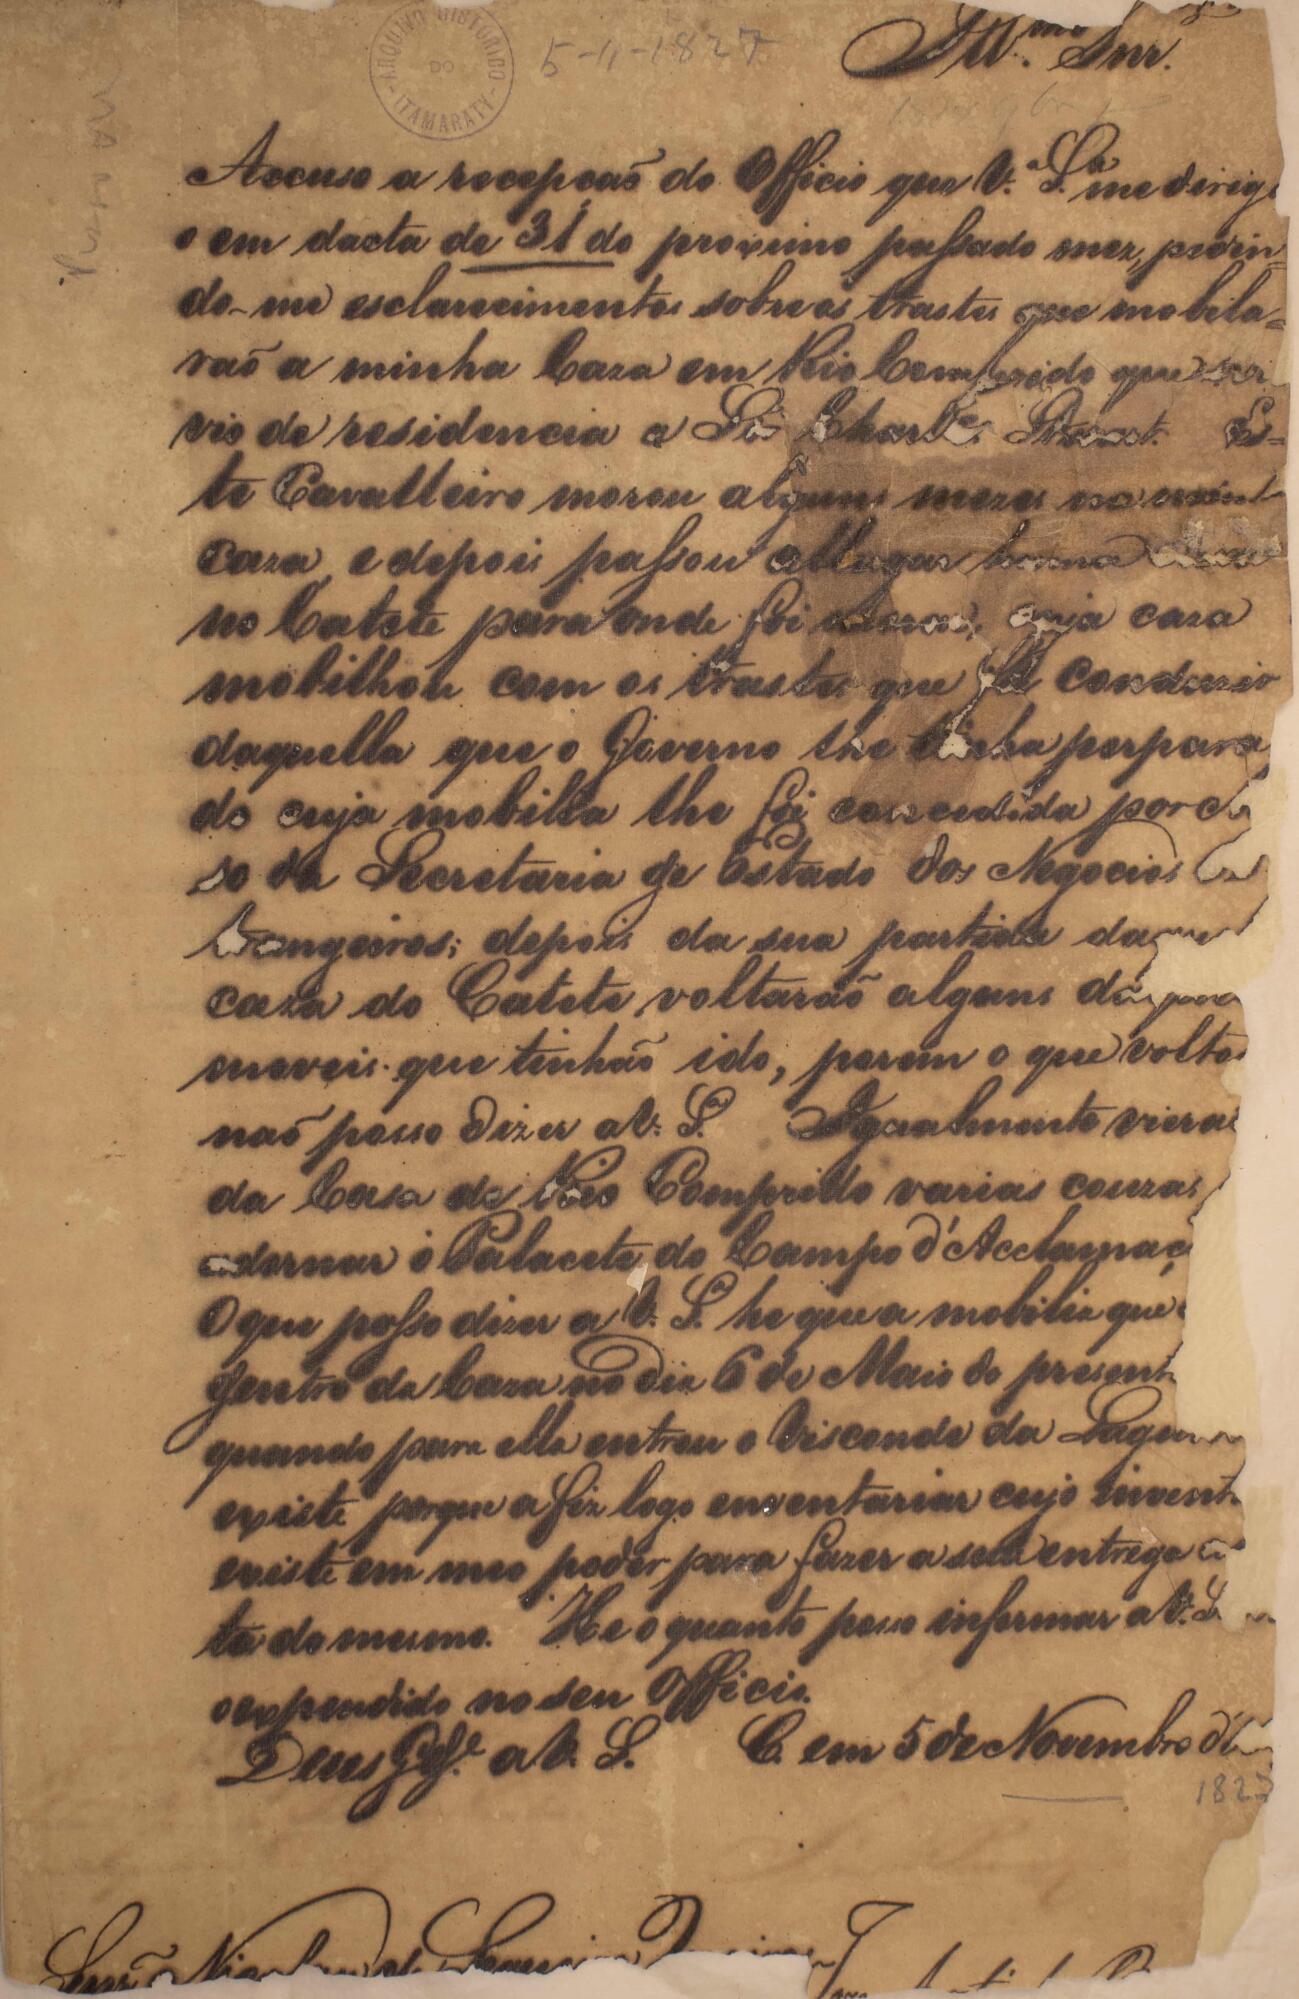 ARQUIVO HISTORICO DO ITAMARATY
5-11-1827
Ill.mo Snr.
Accuso a recepçaõ do Officio que V.ª S.ª me dirigi
o em dacta de 31 do proximo passado mez, pedin-
do-me esclarecimentos sobre os trastes que mobila-
raõ a minha Caza em Rio Comprido que ser
vio de residencia a Sir Charles Stuart. Es-
te Cavalleiro morou alguns mezes na minha
caza, e depois passou allugar huma
no Catete para onde foi morar, cuja caza
mobilhou com os trastes que lá conduzio
daquella que o Governo lhe tinha perpara
do cuja mobilia lhe foi concedida por
so da Secretaria de Estado dos Negocios
trangeiros; depois da sua partida da
caza do Catete voltaraõ alguns da
moveis que tinhaõ ido, porem o que volto
naõ posso dizer a V. S.ª Igualmente viera
da Casa do Rio Comprido varias couzas
adornar o Palacete do Campo d'Acclamaç
O que posso dizer a V. S.ª he que a mobilia que
dentro da Caza no dia 6 de Maio do present
quando para ella entrou o Visconde da Lagun
existe porque a fiz logo enventariar cujo invent
existe em meo poder para fazer a sua entrega
ta do mesmo. He o quanto posso informar a V. S.
o expendido no seu Officio.
Deus G.de a V. S. C. em 5 de Novembro d
1827